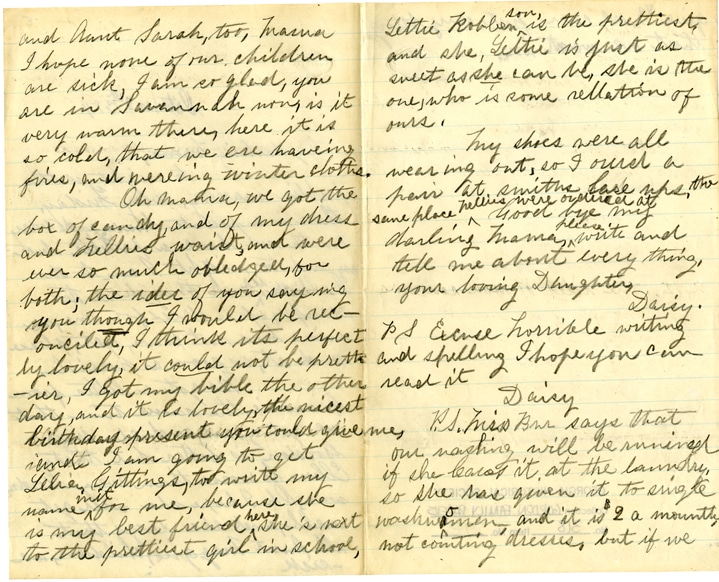 and Aunt Sarah, too, Mama
I hope none of our children
are sick, I am so glad, you
are in Savannah now, is it
very warm there, here it is
so cold, that we ere haveing
fires, and wereing winter cloths.
Oh mama, we got the
box of candy, and of my dress
and Nellies waist, and were
ever so much obledged, for
both; the idea of you saying
you though I would be re-
onciled, I thinks its perfect
ly lovely, it could not be pretti
-ier, I got my bible the other
day, and it is lovely, the nicest
birthday present you could give me,
I am going to get
Gittings, to write my
name in it for me, because she
is my best friend here, she's next
to the prettiest girl in school,
Lettie Robben son, is the prettiest,
and she, Lettie is just as
sweet as she can be, she is the
one, who is some rellation of
ours.
My shoes were all
wearing out, so I ourd a
pair at, smiths lace ups, the
same place Nellies were ordered at
Good bye my
darling Mama, please write and
tell me about every thing,
your loving Daughter,
Daisy.
P S Excuse horrible writing
and spelling I hope you can
read it
Daisy
P.S. Miss Bur says that
our washing will be ruined
if she it at the laundry,
so she has given it to single
washwomen and it is $2 a mounth
not counting dresses, but if we